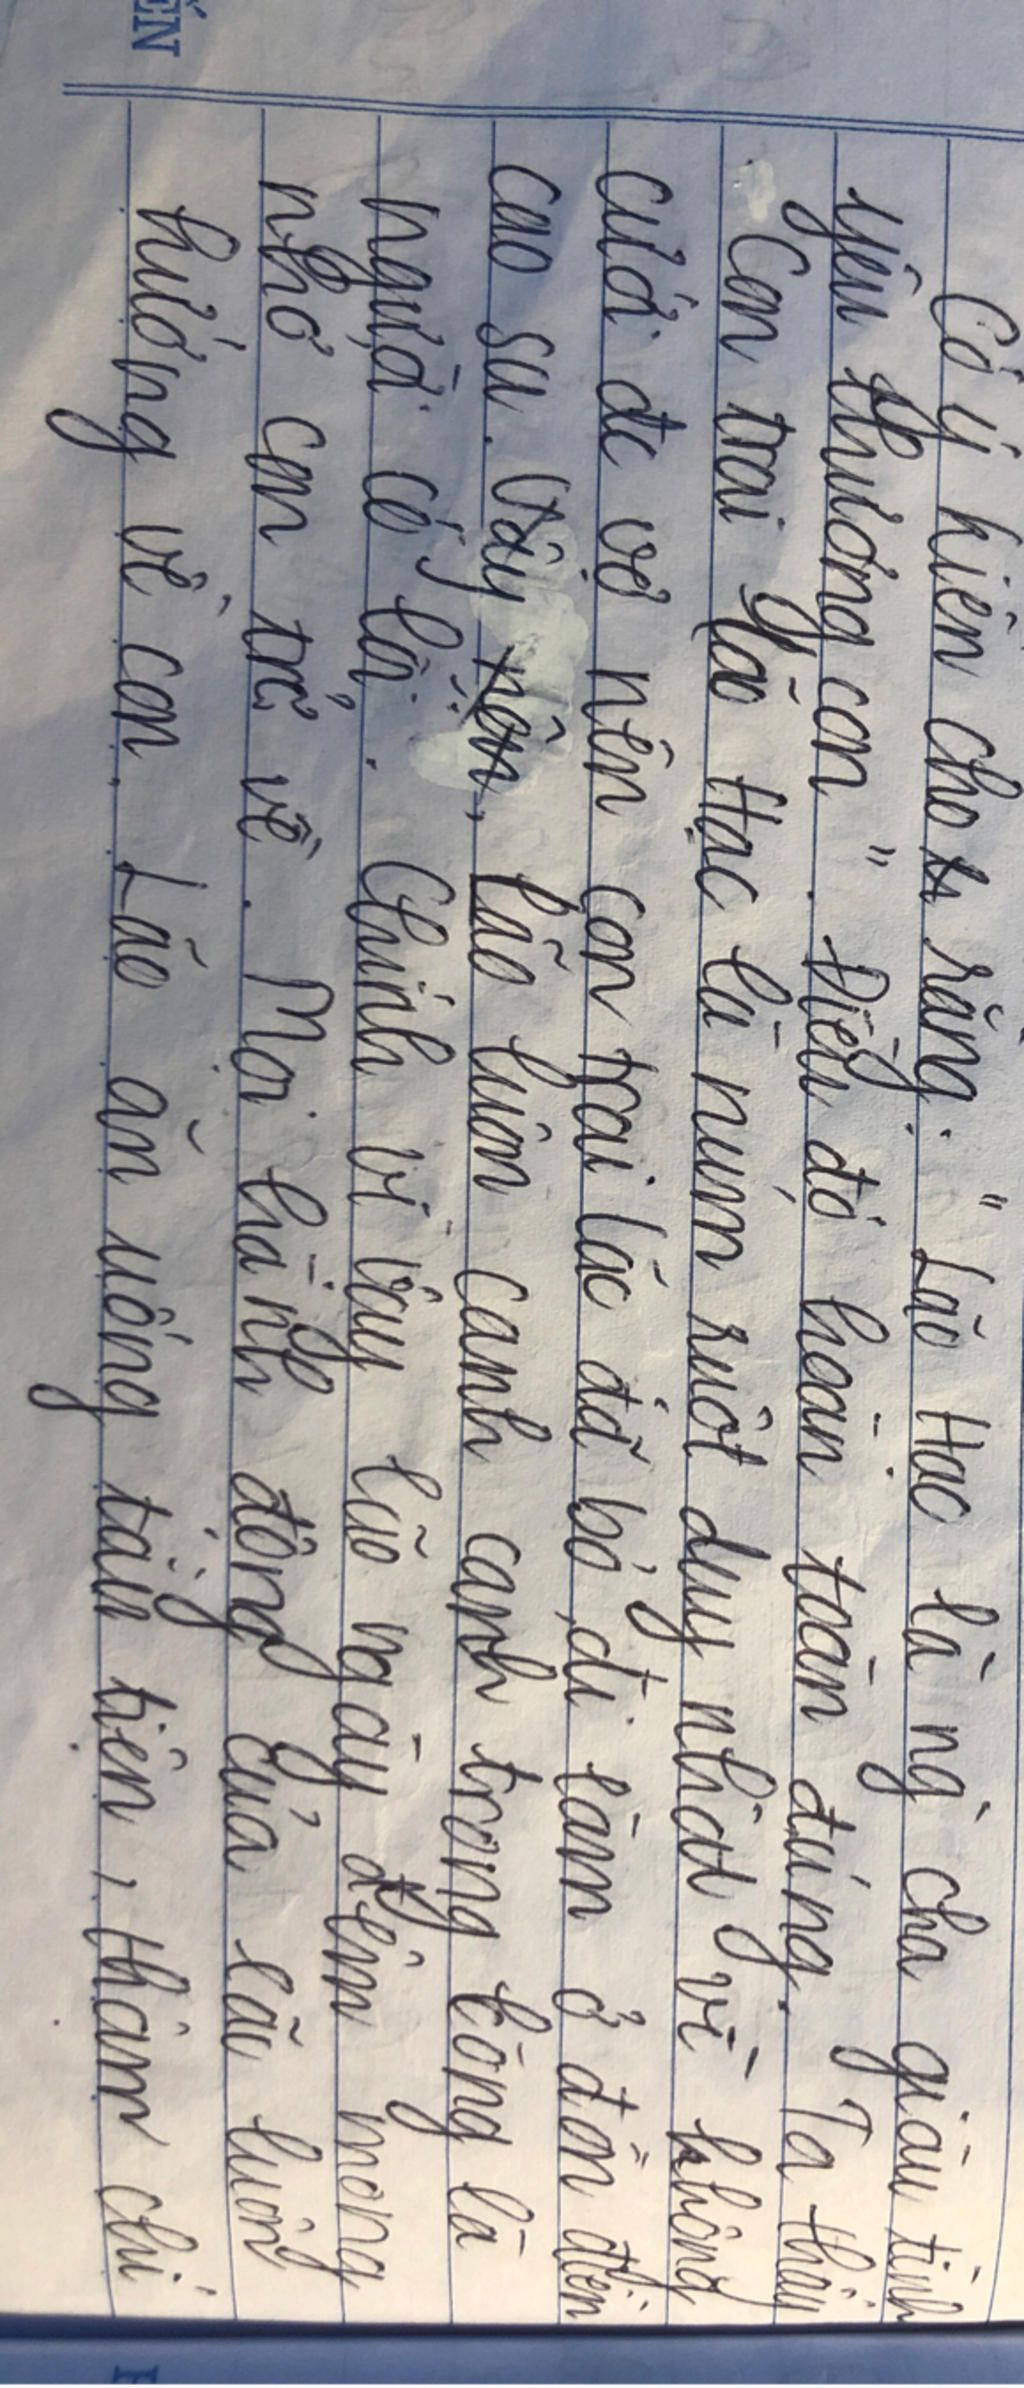 Có ý kiến cho rằng: "Lão Hạc là ng` cha giàu tình
yêu thương con". Điều đó hoàn toàn đúng. Ta thấy
Con trai lão Hạc là núm ruột duy nhất vì không
cưới đc vợ nên con trai lão đã bỏ đi làm ở đồn điền
cao su. Vậy nên, lão luôn canh cánh trong lòng là
người có lỗi. Chính vì vậy lão ngày đêm mong
nhớ con trở về. Mọi hành động của lão luôn
hướng về con. Lão ăn uống tằn tiện, thậm chí
ẾN